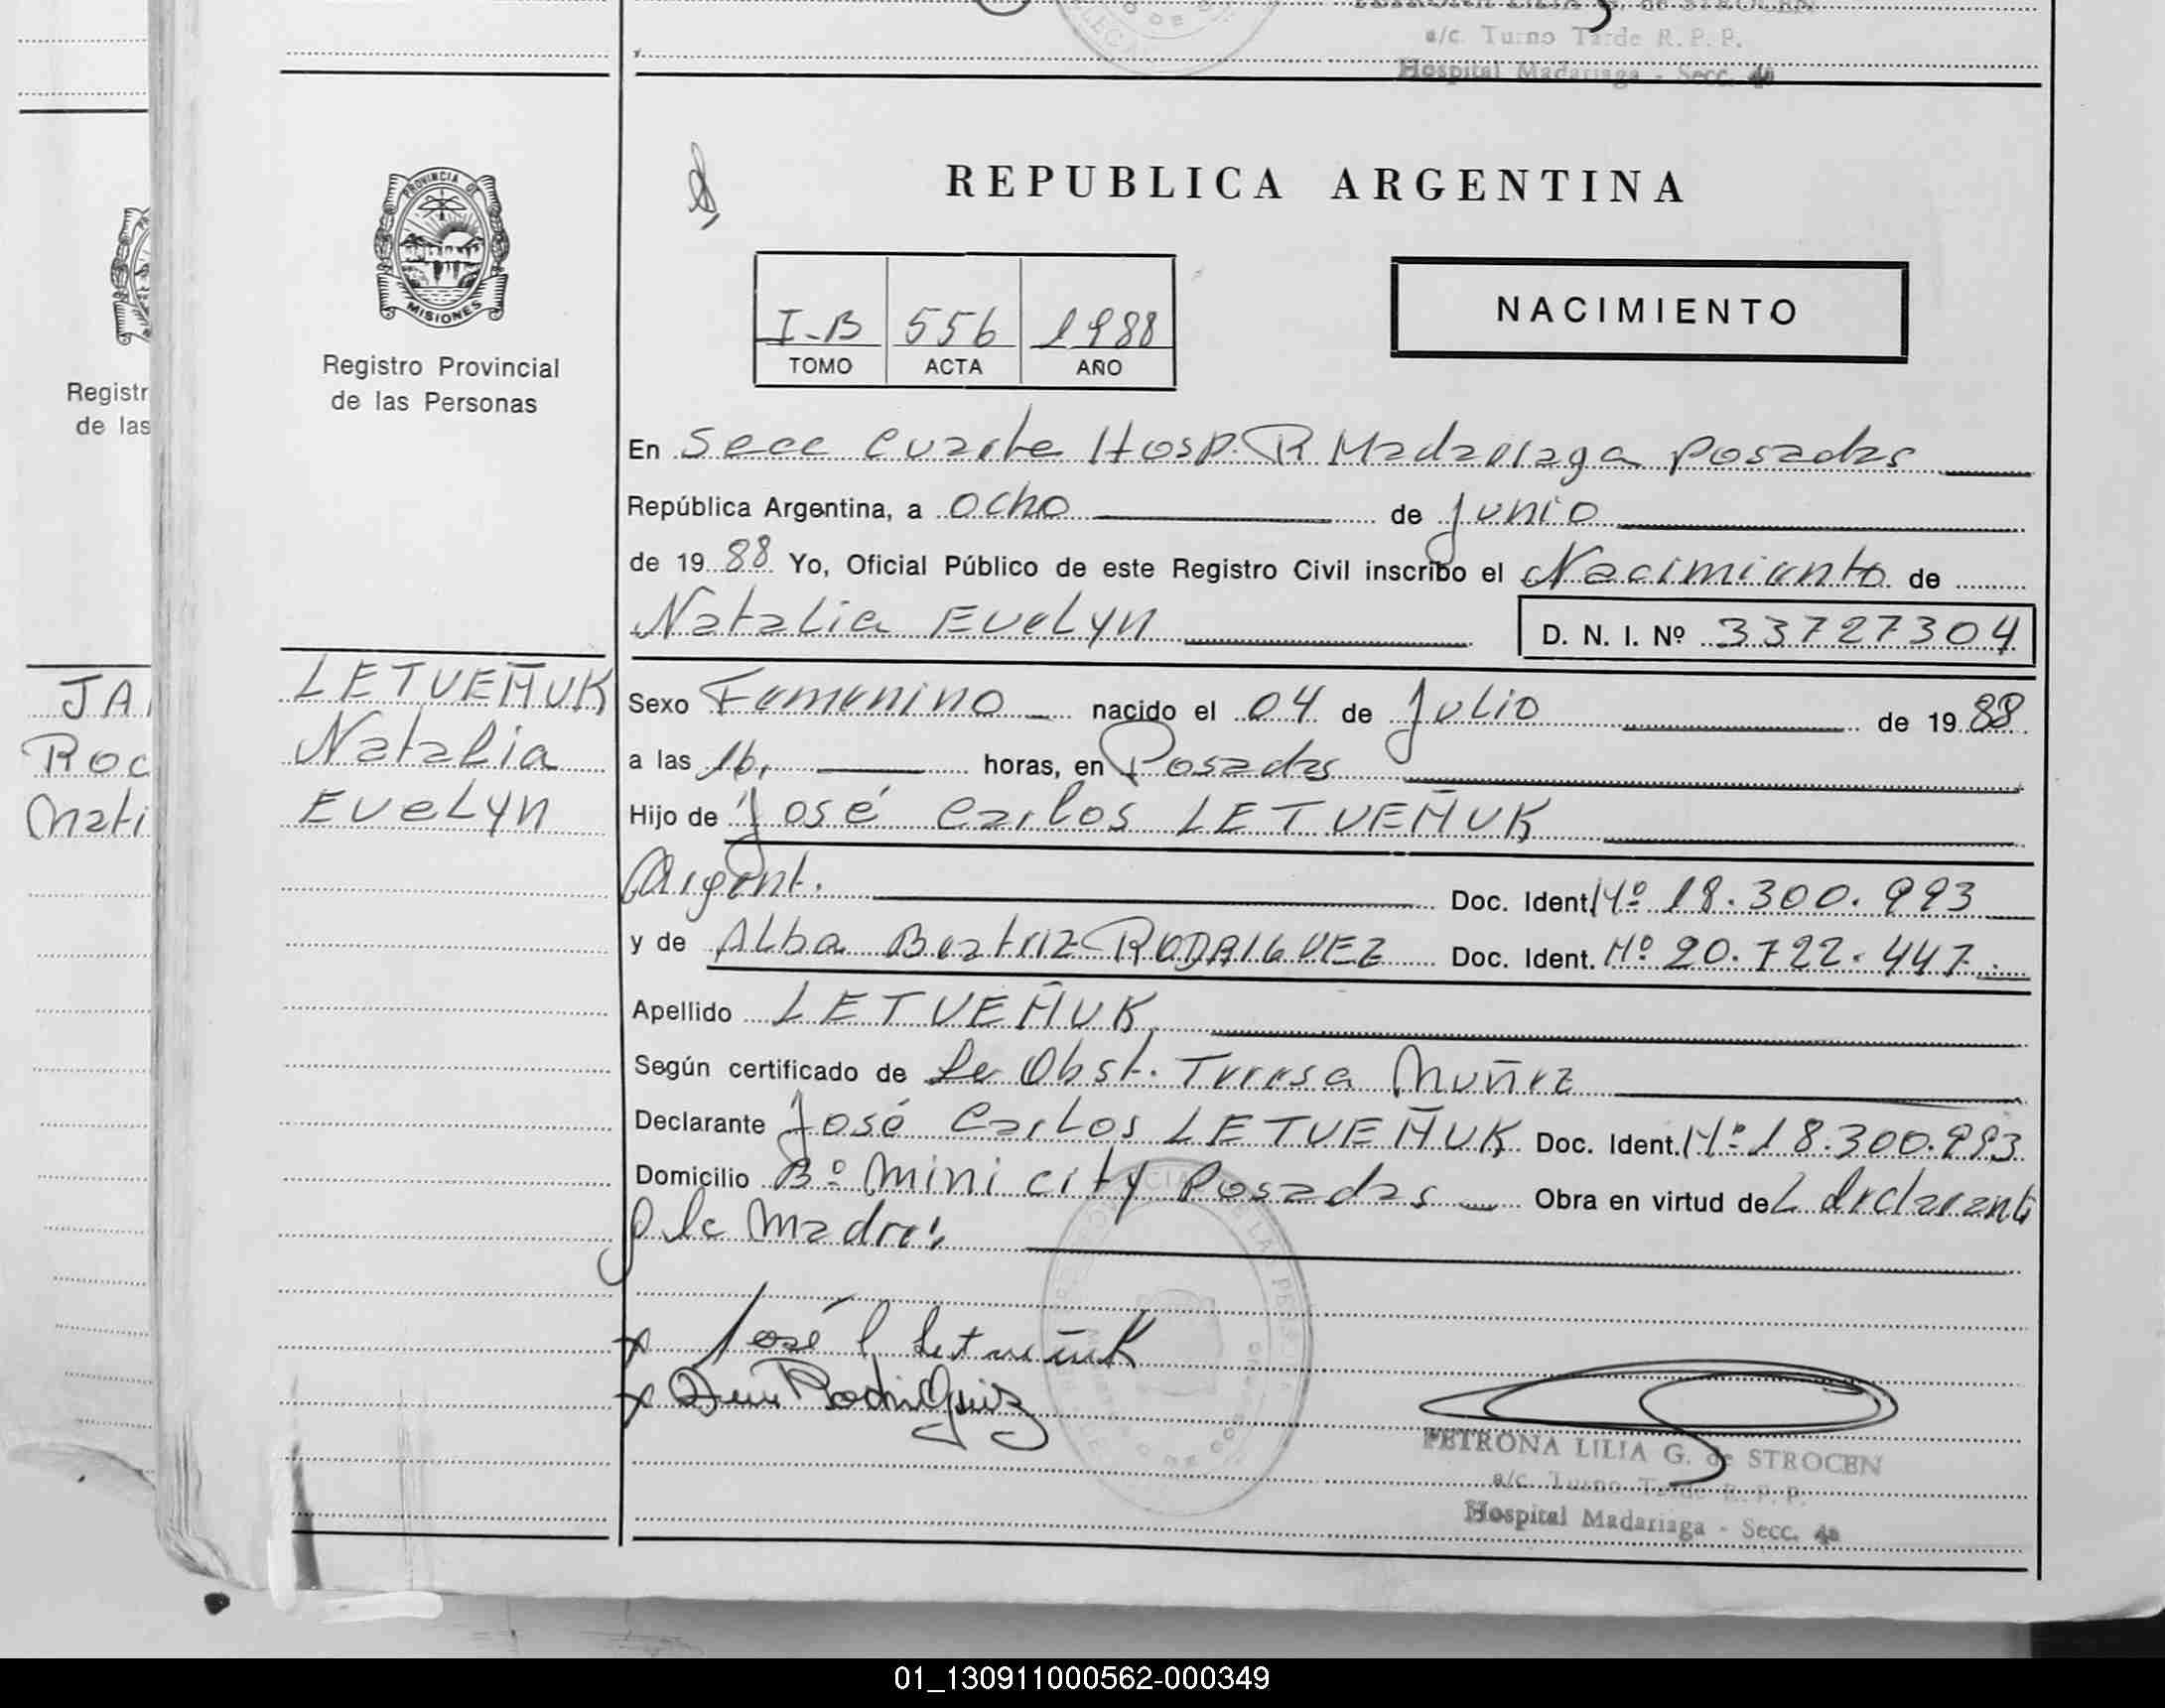 PETRONA LILIA G. de STROCEN
a/c. Turno Tarde R. P. P.
Hospital Madariaga - Secc. 4a
PROVINCIA DE
MISIONES
Registro Provincial
de las Personas
REPUBLICA ARGENTINA
I-B 556 1988
TOMO ACTA AÑO
NACIMIENTO
Registr
de las
En Secc Cuarta Hosp. R Madariaga Posadas
República Argentina, a ocho de Junio
de 19 88 Yo, Oficial Público de este Registro Civil inscribo el Nacimiento de
Natalia Evelyn D. N. I. Nº 33727304
JA
Roc
Mati
LETUEÑUK
Natalia
Evelyn
Sexo Femenino nacido el 04 de Julio de 19 88
a las 16, horas, en Posadas
Hijo de José Carlos LETUEÑUK
Argent. Doc. Ident. Nº 18.300.993
y de Alba Beatriz RODRIGUEZ Doc. Ident. Nº 20.722.447
Apellido LETUEÑUK
Según certificado de la Obst. Teresa Muñez
Declarante José Carlos LETUEÑUK Doc. Ident. Nº 18.300.993
Domicilio Bº Mini city Posadas Obra en virtud del declarante
y la Madre
x José C Letueñuk
x Rodriguez
PETRONA LILIA G. de STROCEN
a/c. Turno Tarde R. P. P.
Hospital Madariaga - Secc. 4a
01_130911000562-000349